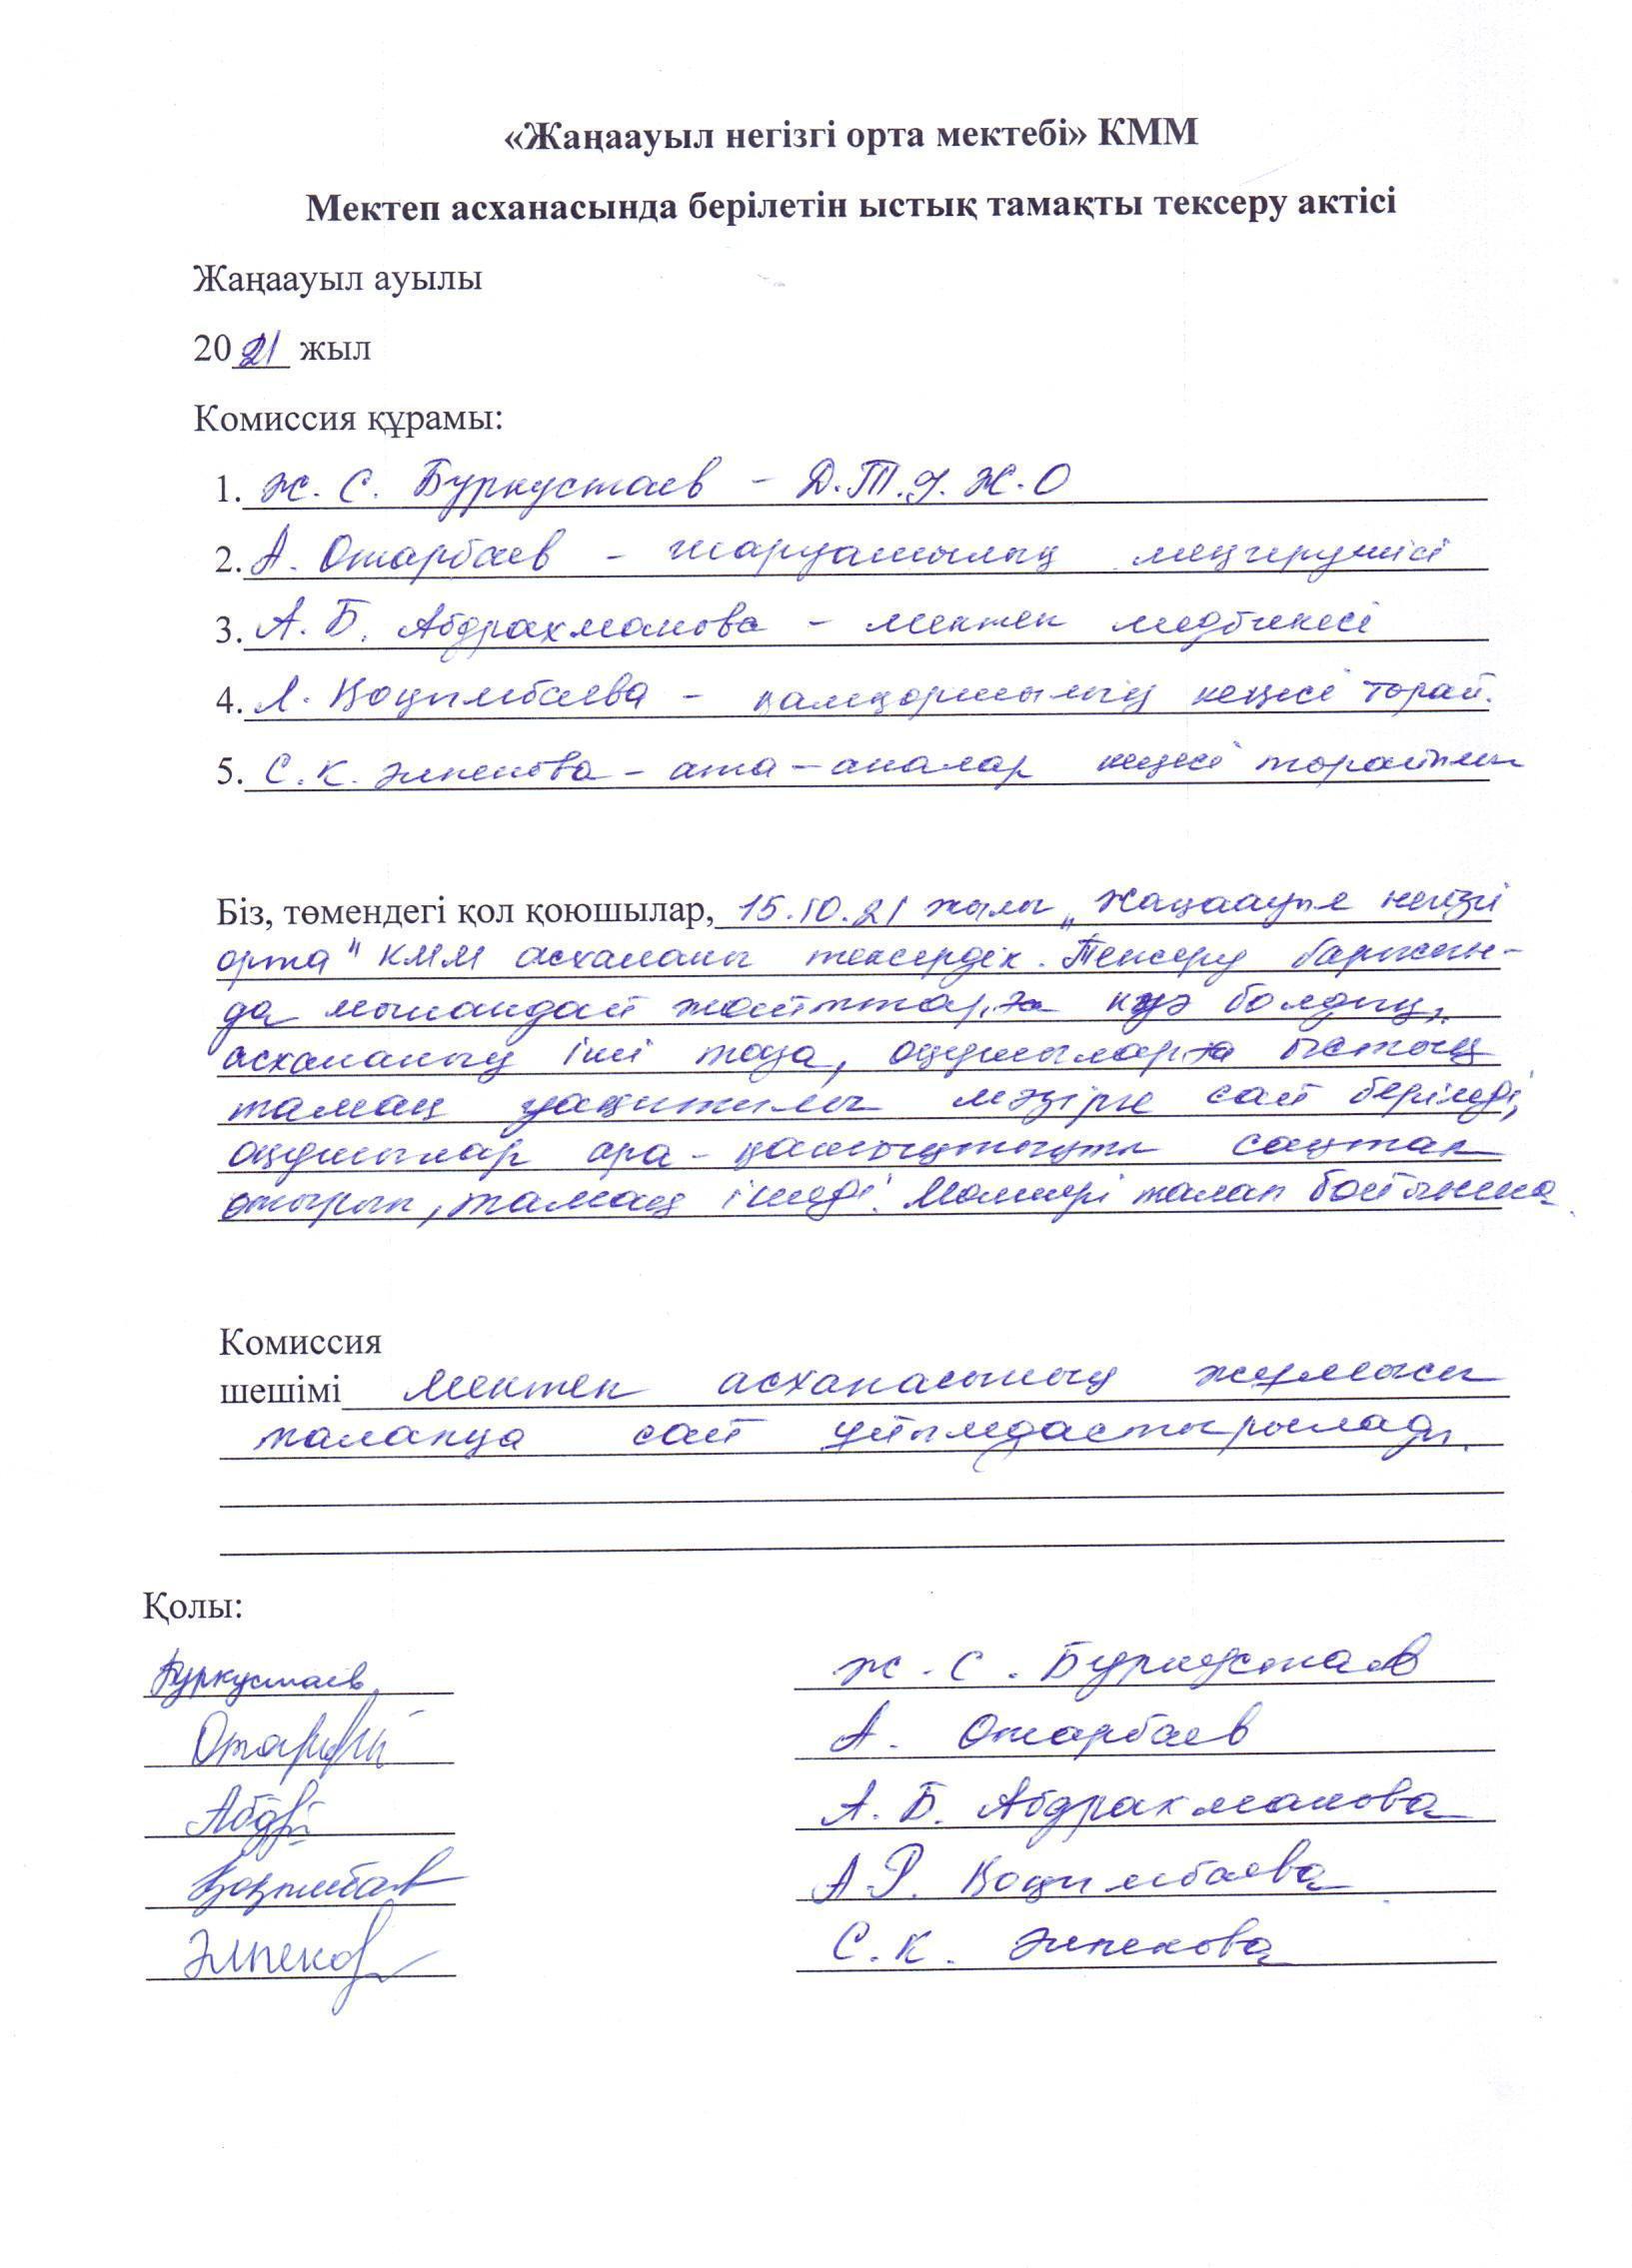 «Жаңаауыл негізгі орта мектебі» КММ
Мектеп асханасында берілетін ыстық тамақты тексеру актісі
Жаңаауыл ауылы
2021 жыл
Комиссия құрамы:
1. Ж. С. Буркустаев - Д.Т.І.Ж.О
2. А. Отарбаев - шаруашылық меңгерушісі
3. А. Б. Абдрахманова - мектеп медбикесі
4. А. Қоңымбаева - қамқоршылық кеңесі төрай.
5. С. К. Әлпекова - ата-аналар кеңесі төрайымы
Біз, төмендегі қол қоюшылар, 15.10.21 жылы „Жаңаауыл негізгі
орта" КММ асхананы тексердік. Тексеру барысын-
да мынандай жайттарға куә болдық,
асхананың іші таза, оқушыларға ыстық
тамақ уақытылы мәзірге сай беріледі,
оқушылар ара-қашықтықты сақтап
отырып, тамақ ішеді. Мөлшері талап бойынша
Комиссия
шешімі Мектеп асханасының жұмысы
талапқа сай ұйымдастырылады.
Қолы:
Буркустаев Ж. С. Буркустаев
А. Отарбаев
А. Б. Абдрахманова
А.Р. Қоңымбаева
С. К. Әлпекова